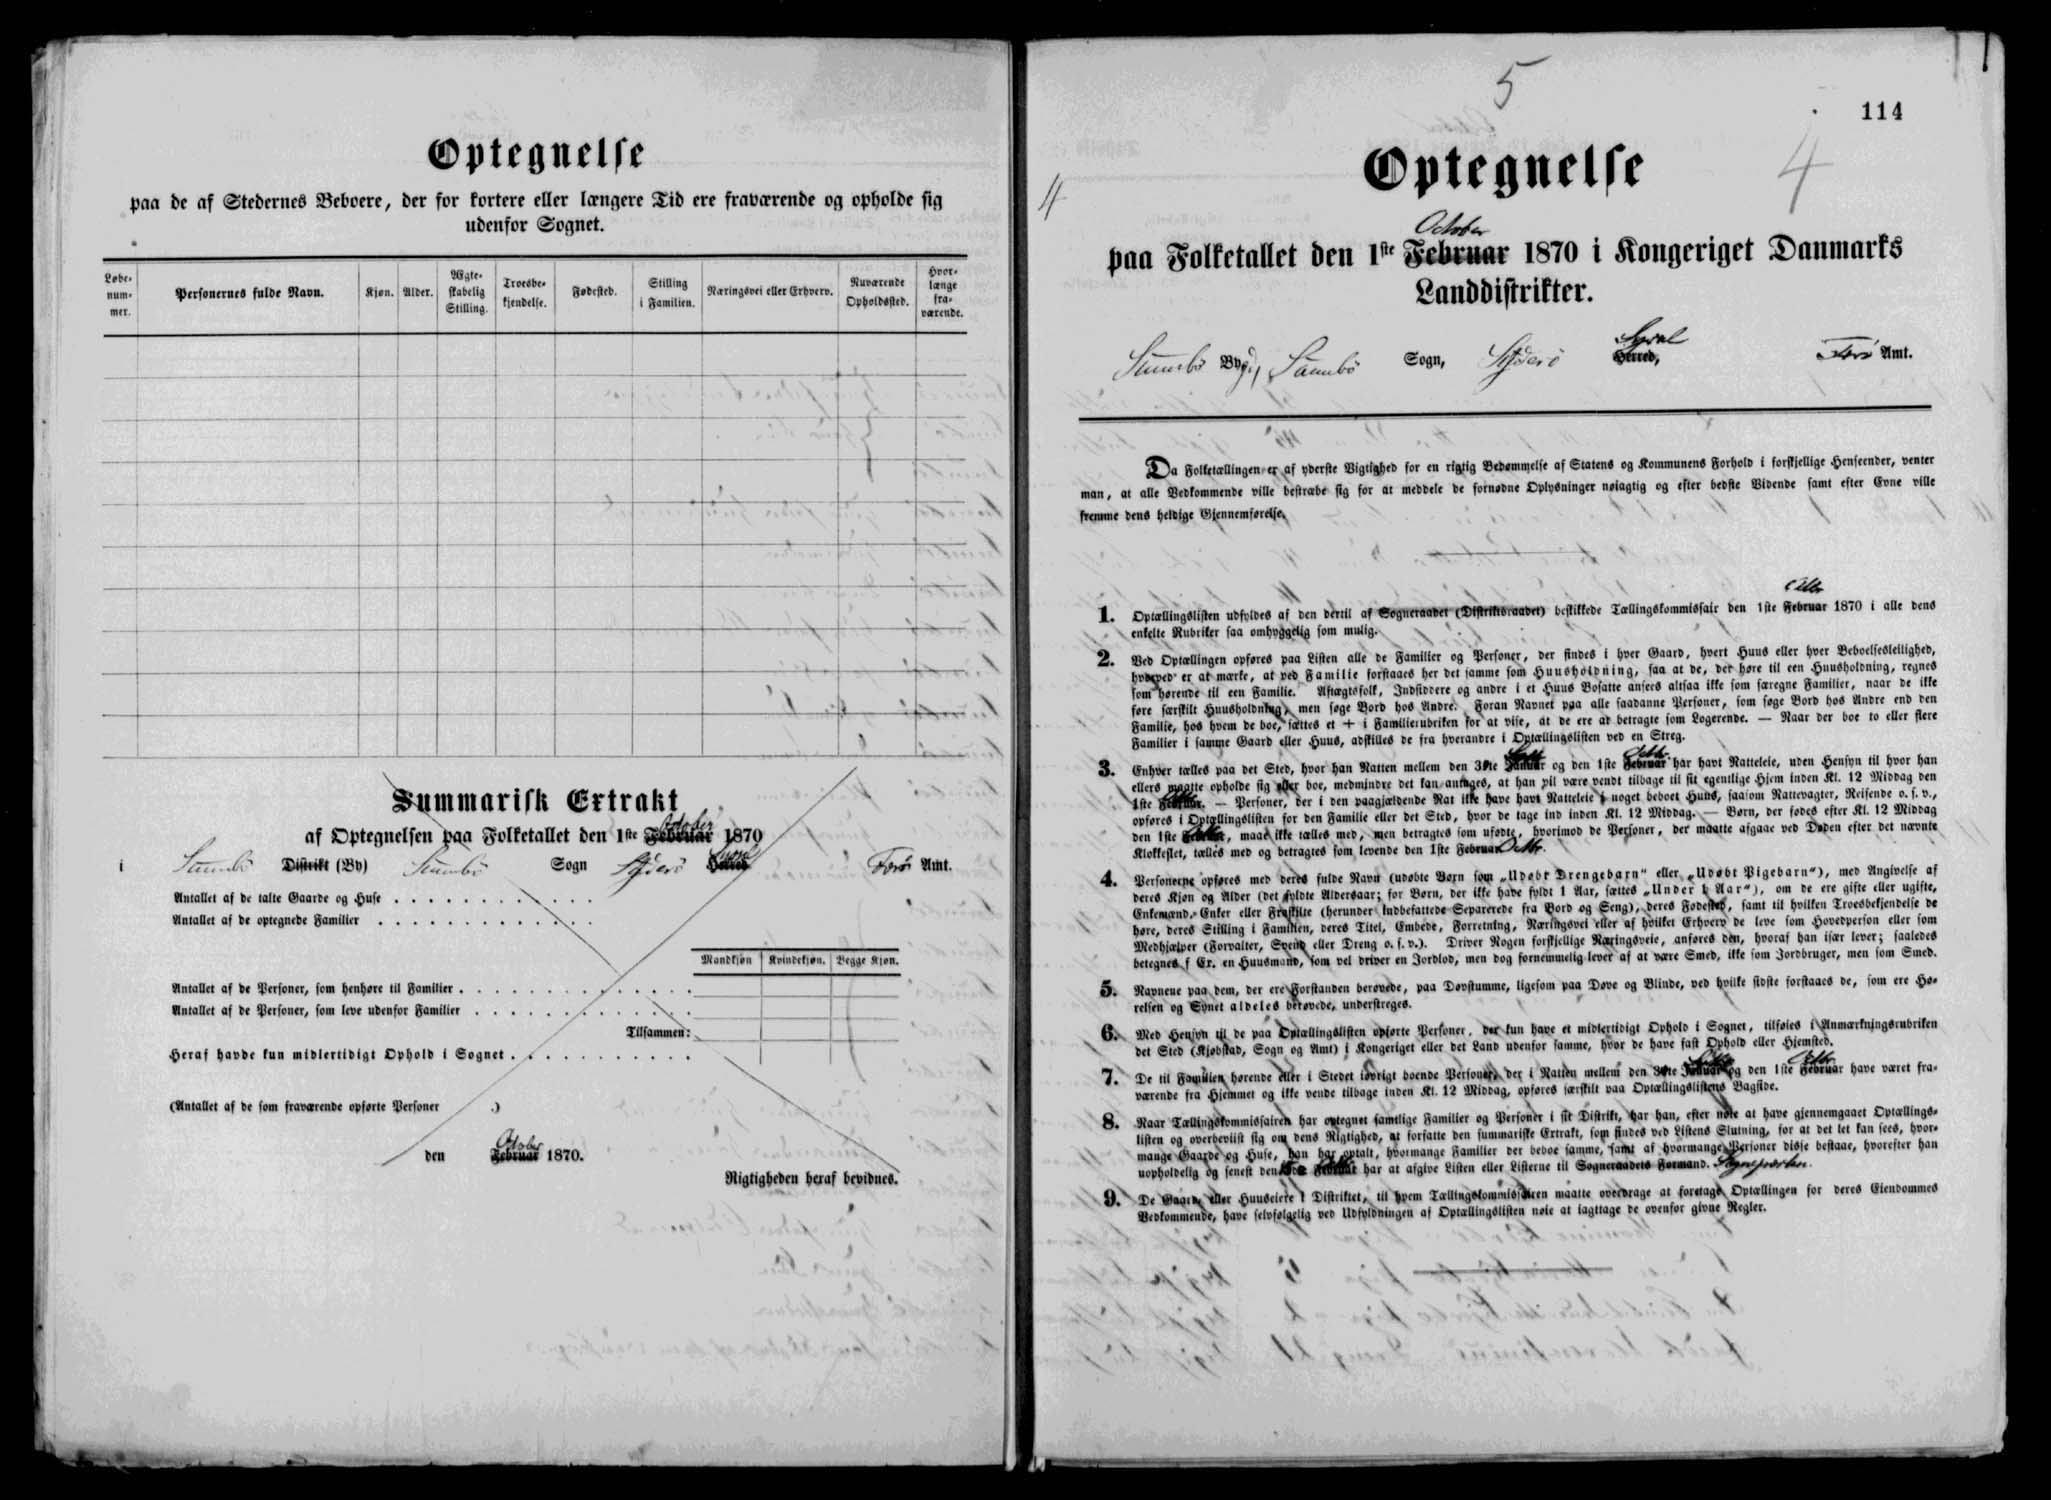 Optegnelse
paa de af Stedernes Beboere, der for kortere eller længere Tid ere fraværende og opholde sig
udenfor Sognet.
Løbe-
num-
mer.
Personernes fulde Navn.
Kjøn.
Alder.
Ægte-
skabelig
Stilling.
Troesbe-
kjendelse.
Fødested.
Stilling
i Familien.
Næringsvei eller Erhverv.
Nuværende
Opholdssted.
Hvor-
længe
fra-
værende.
Summarisk Extrakt
October
af Optegnelsen paa Folketallet den 1ste Februar 1870
i Sumbö Distrikt (By) Sumbö Sogn Syderö Syssel Herred Færö Amt.
Antallet af de talte Gaarde og Huse
Antallet af de optegnede Familier
Mandkjøn Kvindekjøn. Begge Kjøn.
Antallet af de Personer, som henhøre til Familier
Antallet af de Personer, som leve udenfor Familier
Tilsammen:
Heraf havde kun midlertidigt Ophold i Sognet
(Antallet af de som fraværende opførte Personer .)
October
den Februar 1870.
Rigtigheden heraf bevidnes.
5
114
4
4
Optegnelse
October
paa Folketallet den 1ste Februar 1870 i Kongeriget Danmarks
Landdistrikter.
Sumbö Bygd, Sumbö Sogn, Syderö Syssel Herred, Færö Amt.
Da Folketællingen er af yderste Vigtighed for en rigtig Bedømmelse af Statens og Kommunens Forhold i forskjellige Henseender, venter
man, at alle Vedkommende ville bestræbe sig for at meddele de fornødne Oplysninger nøiagtig og efter bedste Vidende samt efter Evne ville
fremme dens heldige Gjennemførelse.
Octbr
1. Optællingslisten udfyldes af den dertil af Sogneraadet (Distriktsraadet) beskikkede Tællingskommissair den 1ste Februar 1870 i alle dens
enkelte Rubriker saa omhyggelig som mulig.
2. Ved Optællingen opføres paa Listen alle de Familier og Personer, der findes i hver Gaard, hvert Huus eller hver Beboelsesleilighed,
hvorved er at mærke, at ved Familie forstaaes her det samme som Huusholdning, saa at de, der høre til een Huusholdning, regnes
som hørende til een Familie. Aftægtsfolk, Indsiddere og andre i et Huus Bosatte ansees altsaa ikke som særegne Familier, naar de ikke
føre særskilt Huusholdning, men søge Bord hos Andre. Foran Navnet paa alle saadanne Personer, som søge Bord hos Andre end den
Familie, hos hvem de boe, sættes et + i Familierubriken for at vise, at de ere at betragte som Logerende. — Naar der boe to eller flere
Familier i samme Gaard eller Huus, adskilles de fra hverandre i Optællingslisten ved en Streg.
3. Enhver tælles paa det Sted, hvor han Natten mellem den 30te Septbr Januar og den 1ste Octbr Februar har havt Natteleie, uden Hensyn til hvor han
ellers maatte opholde sig eller boe, medmindre det kan antages, at han vil være vendt tilbage til sit egentlige Hjem inden Kl. 12 Middag den
1ste Octbr Februar. — Personer, der i den paagjældende Nat ikke have havt Natteleie i noget beboet Huus, saasom Nattevagter, Reisende o. s. v.,
opføres i Optællingslisten for den Familie eller det Sted, hvor de tage ind inden Kl. 12 Middag. — Børn, der fødes efter Kl. 12 Middag
den 1ste Octbr, maae ikke tælles med, men betragtes som ufødte, hvorimod de Personer, der maatte afgaae ved Døden efter det nævnte
Klokkeslet, tælles med og betragtes som levende den 1ste Februar Octbr.
4. Personerne opføres med deres fulde Navn (udøbte Børn som „Udøbt Drengebarn“ eller „Udøbt Pigebarn“), med Angivelse af
deres Kjøn og Alder (det fyldte Aldersaar; for Børn, der ikke have fyldt 1 Aar, sættes „Under 1 Aar“), om de ere gifte eller ugifte,
Enkemænd, Enker eller Fraskilte (herunder indbefattede Separerede fra Bord og Seng), deres Fødested, samt til hvilken Troesbekjendelse de
høre, deres Stilling i Familien, deres Titel, Embede, Forretning, Næringsvei eller af hvilket Erhverv de leve som Hovedperson eller som
Medhjælper (Forvalter, Svend eller Dreng o. s. v.). Driver Nogen forskjellige Næringsveie, anføres den, hvoraf han især lever; saaledes
betegnes f Ex. en Huusmand, som vel driver en Jordlod, men dog fornemmelig lever af at være Smed, ikke som Jordbruger, men som Smed.
5. Navnene paa dem, der ere Forstanden berøvede, paa Døvstumme, ligesom paa Døve og Blinde, ved hvilke sidste forstaaes de, som ere Hø-
relsen og Synet aldeles berøvede, understreges.
6. Med Hensyn til de paa Optællingslisten opførte Personer, der kun have et midlertidigt Ophold i Sognet, tilføies i Anmærkningsrubriken
det Sted (Kjøbstad, Sogn og Amt) i Kongeriget eller det Land udenfor samme, hvor de have fast Ophold eller Hjemsted.
7. De til Familien hørende eller i Stedet iøvrigt boende Personer, der i Natten mellem den 30te Septbr Januar og den 1ste Octbr Februar have været fra-
værende fra Hjemmet og ikke vende tilbage inden Kl. 12 Middag, opføres særskilt paa Optællingslistens Bagside.
8. Naar Tællingskommissairen har optegnet samtlige Familier og Personer i sit Distrikt, har han, efter nøie at have gjennemgaaet Optællings-
listen og overbeviist sig om dens Rigtighed, at forfatte den summariske Extrakt, som findes ved Listens Slutning, for at det let kan sees, hvor-
mange Gaarde og Huse, han har optalt, hvormange Familier der beboe samme, samt af hvormange Personer disse bestaae, hvorefter han
uopholdelig og senest den Octbr Februar har at afgive Listen eller Listerne til Sogneraadets Formand. Sognepræsten.
9. De Gaard- eller Huuseiere i Distriktet, til hvem Tællingskommissairen maatte overdrage at foretage Optællingen for deres Eiendommes
Vedkommende, have selvfølgelig ved Udfyldningen af Optællingslisten nøie at iagttage de ovenfor givne Regler.